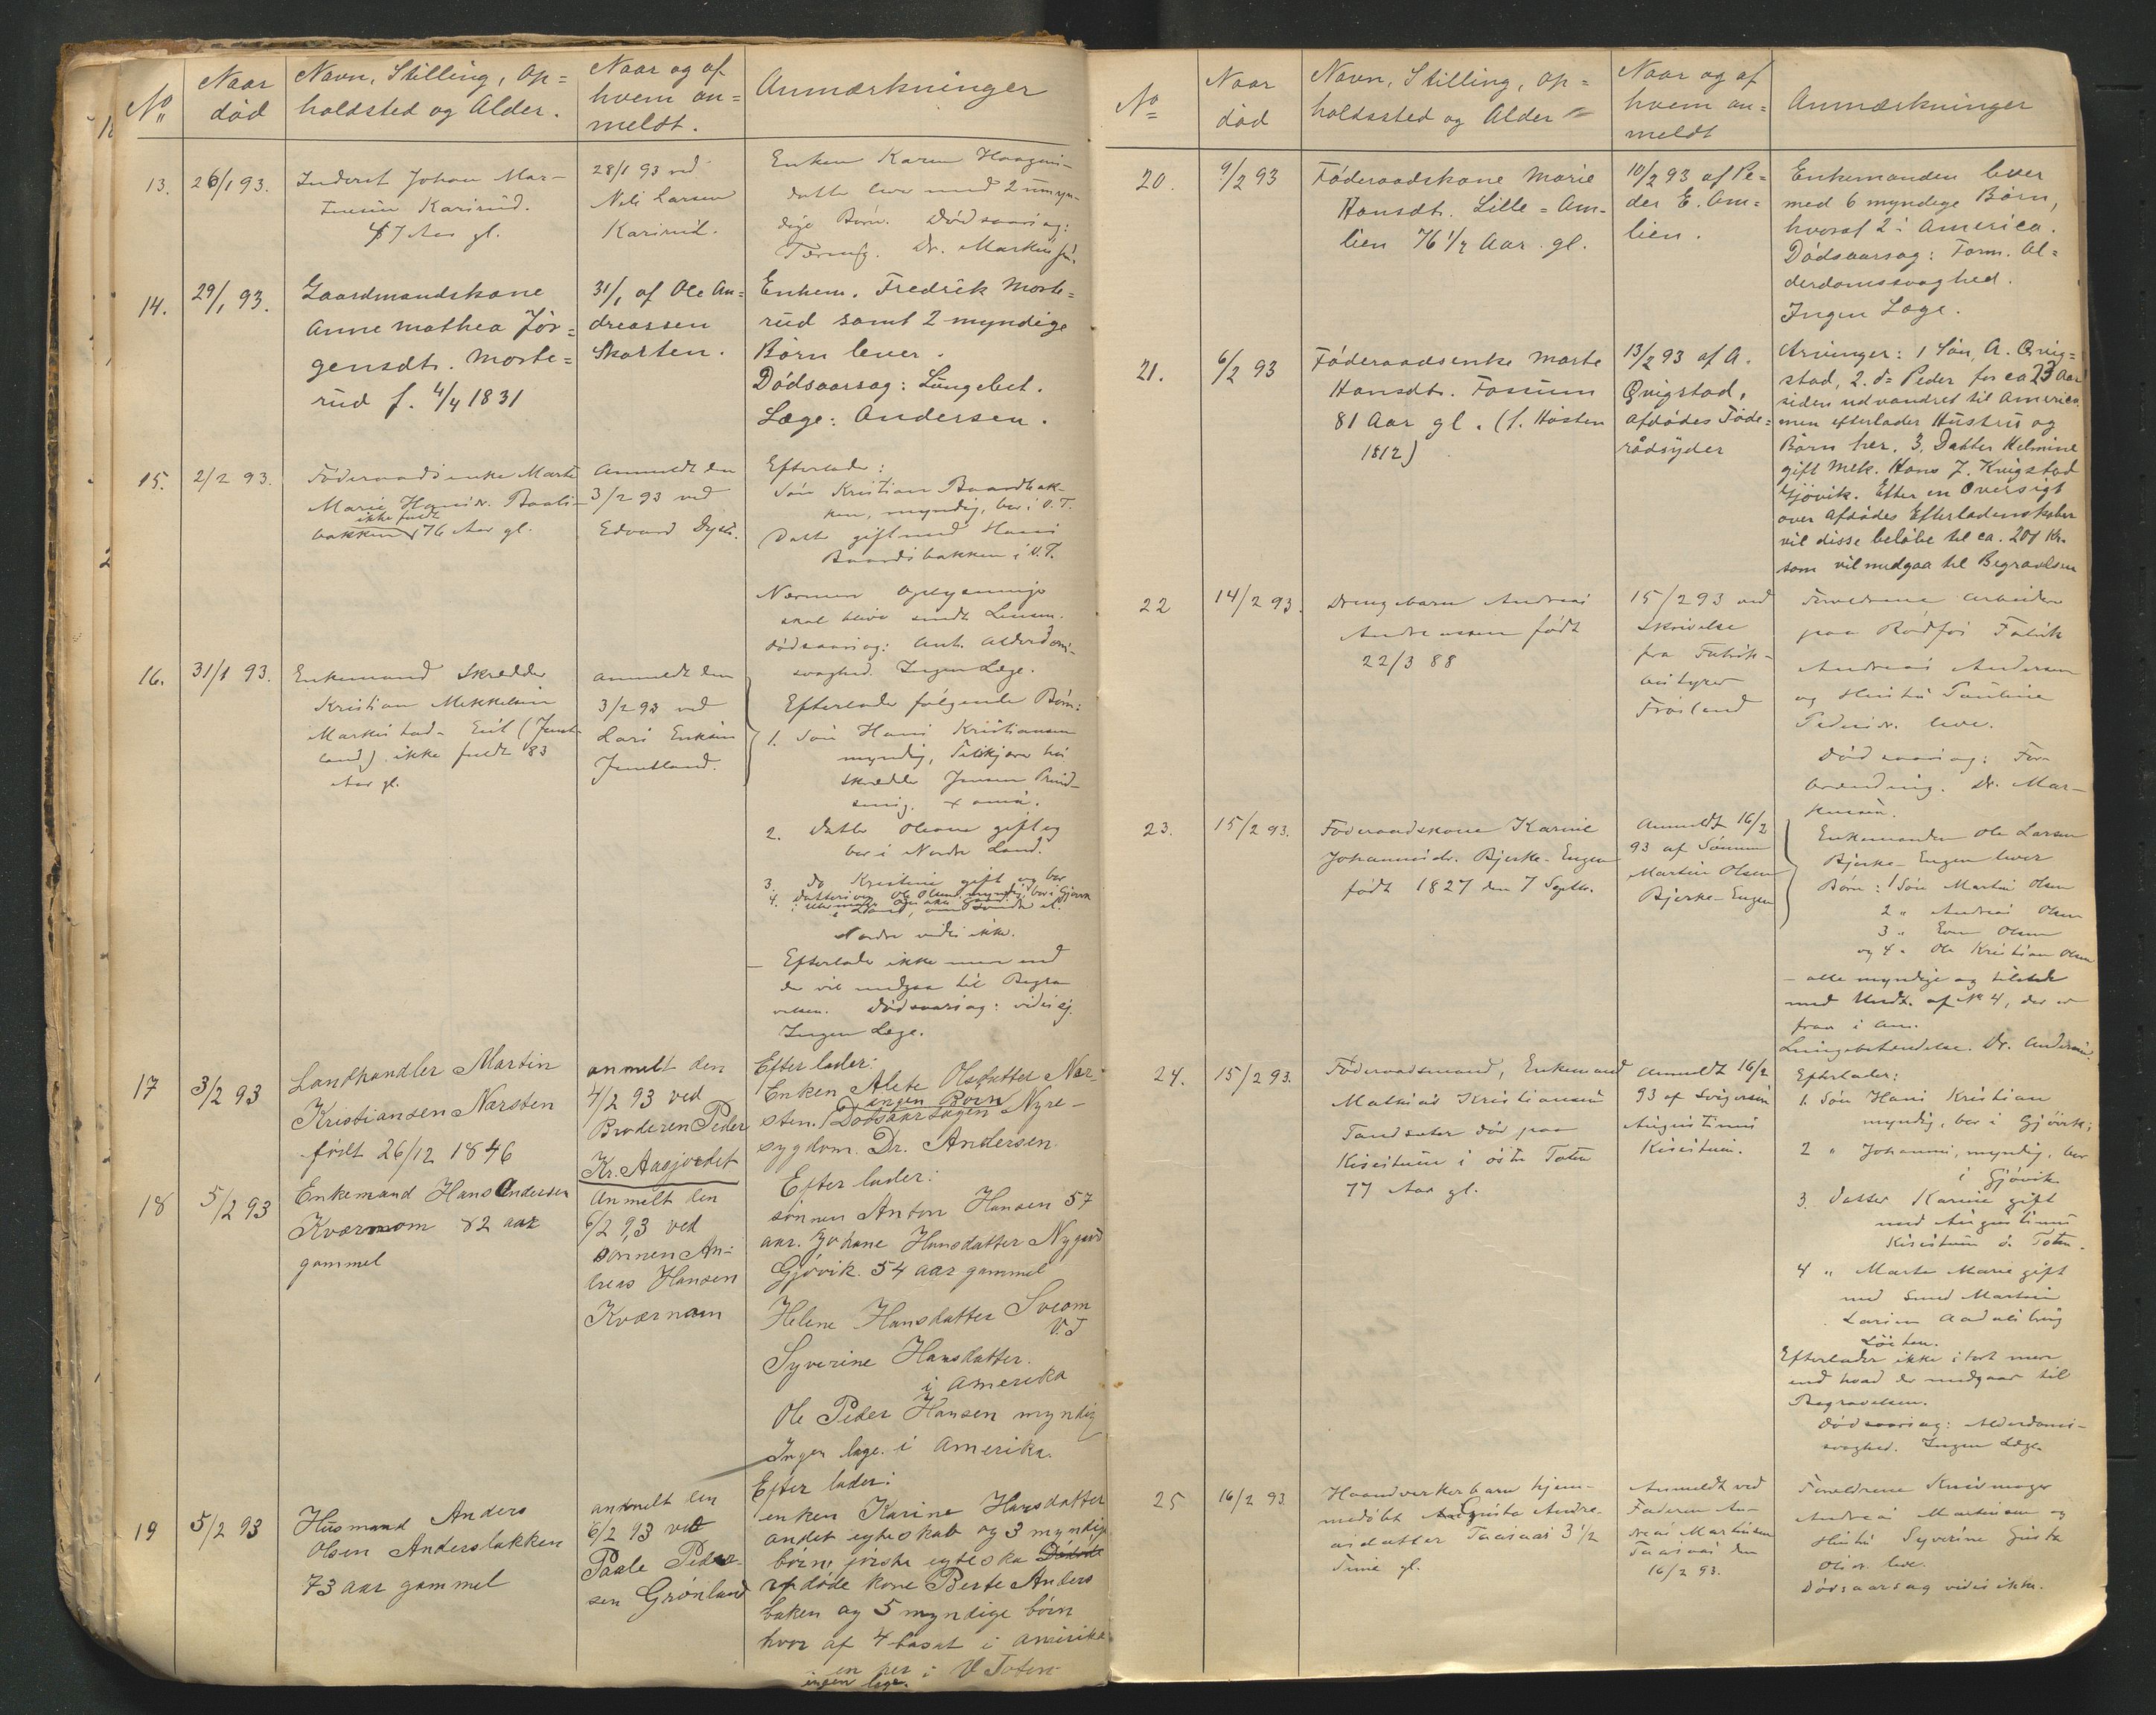 No
Naar
død
Navn, Stilling, Op=
holdssted og Alder.
Naar og af
hvem an=
meldt.
Anmærkninger
13.
26/1 93.
Inderst Johan Mar-
Karirud.
47 Aar gl.
28/1 93 ved
Nils Larsen
Karirud.
Enken Karen Haagens-
datter lever med 2 umyn-
dige Børn. Dødsaarsag:
Tæring. Dr. Markus
14.
29/1 93.
Gaardmandskone
Anne Mathea Jør=
gensdt. Morte=
rud f. 4/4 1831
31/1 af Ole An=
dreassen
Skarten.
Enkem. Fredrik Morte=
rud samt 2 myndige
Børn lever.
Dødsaarsag: Lungebet.
Læge: Andersen.
15.
2/2 93.
Føderaadsenke Marte
Marie Hansdr.
ikke fuldt
bakken 76 Aar gl.
Anmeldt den
3/2 93 ved
Edvard
Efterlader:
Søn Kristian
myndig, bor i V.T.
Datter gift med Hans
bakken i V.T.
Nærmere Oplysninger
skal blive sendt Lensm.
Dødsaarsag: Ant. Alderdoms-
svaghed. Ingen Læge.
16.
31/1 93.
Enkemand Skrædder
Kristian Mikkelsen
Markestad- Eiet
ikke fuldt 83
Aar gl.
Anmeldt den
3/2 93 ved
Lars Eriksen
Efterlader følgende Børn:
1. Søn Hans Kristiansen
myndig,
Skrædder Jensen
2. Datter Oleane gift og
bor i Nordre Land.
3. do Kristine gift og bor
4.
Nordre vides ikke.
Efterlader ikke mere end
der vil medgaa til Begra-
velsen. Dødsaarsag: vides ej.
Ingen Læge.
17
3/2 93
Landhandler Martin
Kristiansen Nærsten
født 26/12 1846
anmelt den
4/2 93 ved
Broderen Peder
Kr. Aasjordet
Efterlader:
Enken Alete Olsdatter Nær-
ingen Børn
sten. Dødsaarsagen Nyre-
sygdom. Dr. Andersen
18
5/2 93
Enkemand Hans Andersen
Kværnom 82 aar
gammel
Anmelt den
6/2 93 ved
sønnen An-
dreas Hansen
Kværnom
Efterlader:
sønnen Anton Hansen 57
aar. Johane Hansdatter Nygard
Gjøvik. 54 aar gammel
Helene Hansdatter Sveom
V.T
Syverine Hansdatter.
i Amerika
Ole Peder Hansen myndig
Ingen læge. i Amerika.
19
5/2 93
Husmand Anders
Olsen Andersbakken
73 aar gammel
anmelt den
6/2 93 ved
Paale Peder-
sen Grønland
Efterlader:
enken Karine Hansdatter
andet egteskab og 3 myndige
børn, første egteska
afdøde kone Berte Anders
baken og 5 myndige børn
hvor af 4 bosat i Amerika
en her i V Toten
ingen læge.
No
Naar
død
Navn, Stilling, Op=
holdssted og Alder
Naar og af
hvem an=
meldt
Anmærkninger
20.
9/2 93
Føderaadskone Marie
Hansdt. Lille=Am-
lien 76 1/2 Aar gl.
10/2 93 af Pe=
der E. Am=
lien.
Enkemanden lever
med 6 myndige Børn,
hvoraf 2 i America.
Dødsaarsag: Form. Al=
derdomssvaghed.
Ingen Læge.
21.
6/2 93
Føderaadsenke Marte
Hansdt. Fossum
81 Aar gl. (f. Høsten
1812)
13/2 93 af A.
Qvigstad,
afdødes Føde=
rådsyder
Arvinger: 1 Søn, A. Qvig=
stad, 2. do Peder for ca 23 Aar
siden udvandret til America
men efterlader Hustru og
Børn her. 3. Datter Helmine
gift Mek. Hans J. Kvigstad
Gjøvik. Efter en Oversigt
over Afdødes Efterladenskaber
vil disse beløbe til ca. 201 Kr.
som vil medgaa til Begravelsen
22
14/2 93.
Drengebarn Andreas
Andreassen født
22/3 88
15/2 93 ved
Skrivelse
fra Fabrik-
bestyrer
Frøisland
Forældrene Arbeider
paa Rødfos Fabrik
Andreas Andersen
og Hustru Pauline
Pedersdr. lever.
Dødsaarsag: For-
brænding. Dr. Mar-
23.
15/2 93.
Føderaadskone Karine
Johannesdr. Bjerke-Engen
født 1827 den 7 Septbr.
Anmeldt 16/2
93 af Sønnen
Martin Olsen
Bjerke-Engen
Enkemanden Ole Larsen
Bjerke-Engen lever
Børn: 1 Søn Martin Olsen
2 " Andreas Olsen
3 " Even Olsen
og 4 " Ole Kristian Olsen
- alle myndige og tilstede
med Undt. af No 4, der er
fravær i Am.
Lungebetændelse. Dr. Andersen.
24.
15/2 93.
Føderaadsmand, Enkemand
Mathias Kristiansen
Tandsæter død paa
Kisestuen i Østre Toten
77 Aar gl.
Anmeldt 16/2
93 af Svigersøn
Augustinus
Kisestuen.
Efterlader:
1. Søn Hans Kristian
myndig, bor i Gjøvik;
2 " Johannes, myndig, bor
i Gjøvik
3. Datter Karine gift
med Augustinus
Kisestuen Ø. Toten.
4 " Marte Marie gift
med Smed Martin
Larsen
Løiten.
Efterlader ikke stort mere
end hvad der medgaar til
Begravelsen.
Dødsaarsag: Alderdoms-
svaghed. Ingen Læge.
25
16/2 93.
Haandverkerbarn hjem-
medøbt Augusta Andre-
asdatter Taasaas 3 1/2
Time gl.
Anmeldt ved
Faderen An-
dreas Martinsen
Taasaas den
16/2 93.
Forældrene
Andreas Martinsen og
Hustru Syverine
Olsdr. lever.
Dødsaarsag vides ikke.